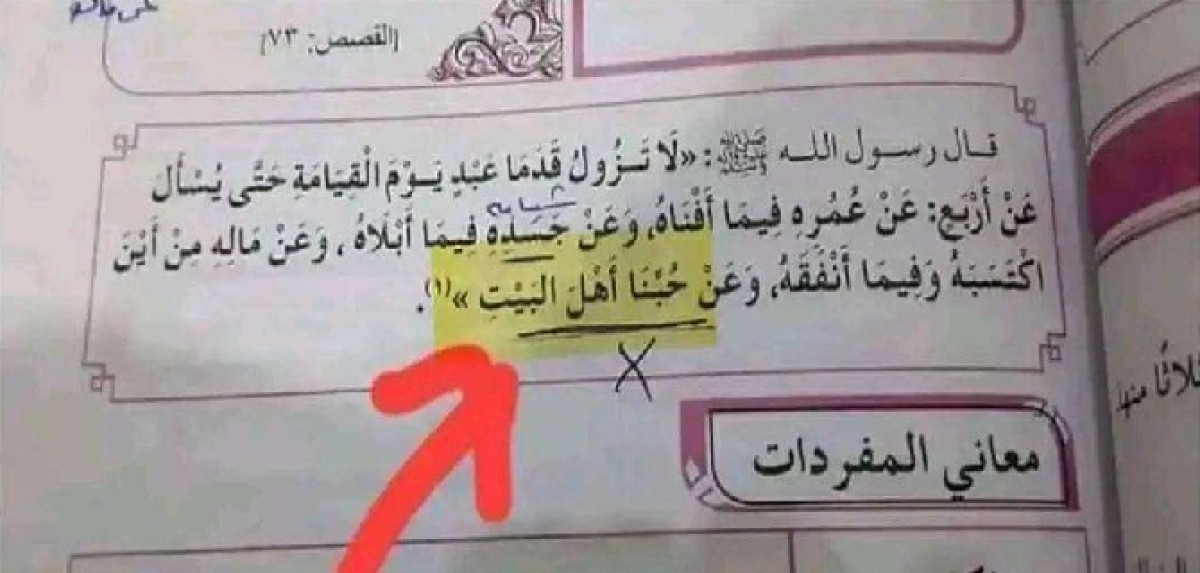 [القصص: ٧٣]
قال رسول الله ﷺ: «لَا تَزُولُ قَدَمَا عَبْدٍ يَوْمَ الْقِيَامَةِ حَتَّى يُسْأَلَ
شبابه
عَنْ أَرْبَعٍ: عَنْ عُمُرِهِ فِيمَا أَفْنَاهُ، وَعَنْ جَسَدِهِ فِيمَا أَبْلَاهُ، وَعَنْ مَالِهِ مِنْ أَيْنَ
اكْتَسَبَهُ وَفِيمَا أَنْفَقَهُ، وَعَنْ حُبِّنَا أَهْلَ البَيْتِ»(١).
X
معاني المفردات
ثلاثًا منها